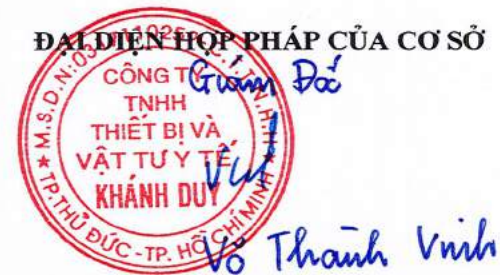 ĐẠI DIỆN HỢP PHÁP CỦA CƠ SỞ
Giám Đốc
CÔNG TY
TNHH
THIẾT BỊ VÀ
VẬT TƯ Y TẾ
KHÁNH DUY
TP. THỦ ĐỨC - TP. HỒ CHÍ MINH
Võ Thành Vinh